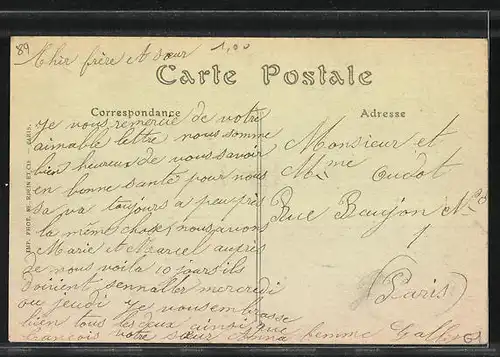 89
Cher frère et sœur
1,00
Carte Postale
Correspondance
Adresse
je vous remercie de votre
aimable lettre nous somme
bien heureux de vous savoir
en bonne santé pour nous
sa va toujours a peupris
la meme chose nous avons
Marie et Marcel aupris
de nous voila 10 jours ils
doivent sennaller mercredi
ou jeudi je vous embrasse
bien tous les deux ainsi que
francois votre sœur Anna femme
Monsieur et
Mme Oudot
Rue Baujon No
1
(Paris)
IMP. PHOT. PARIS